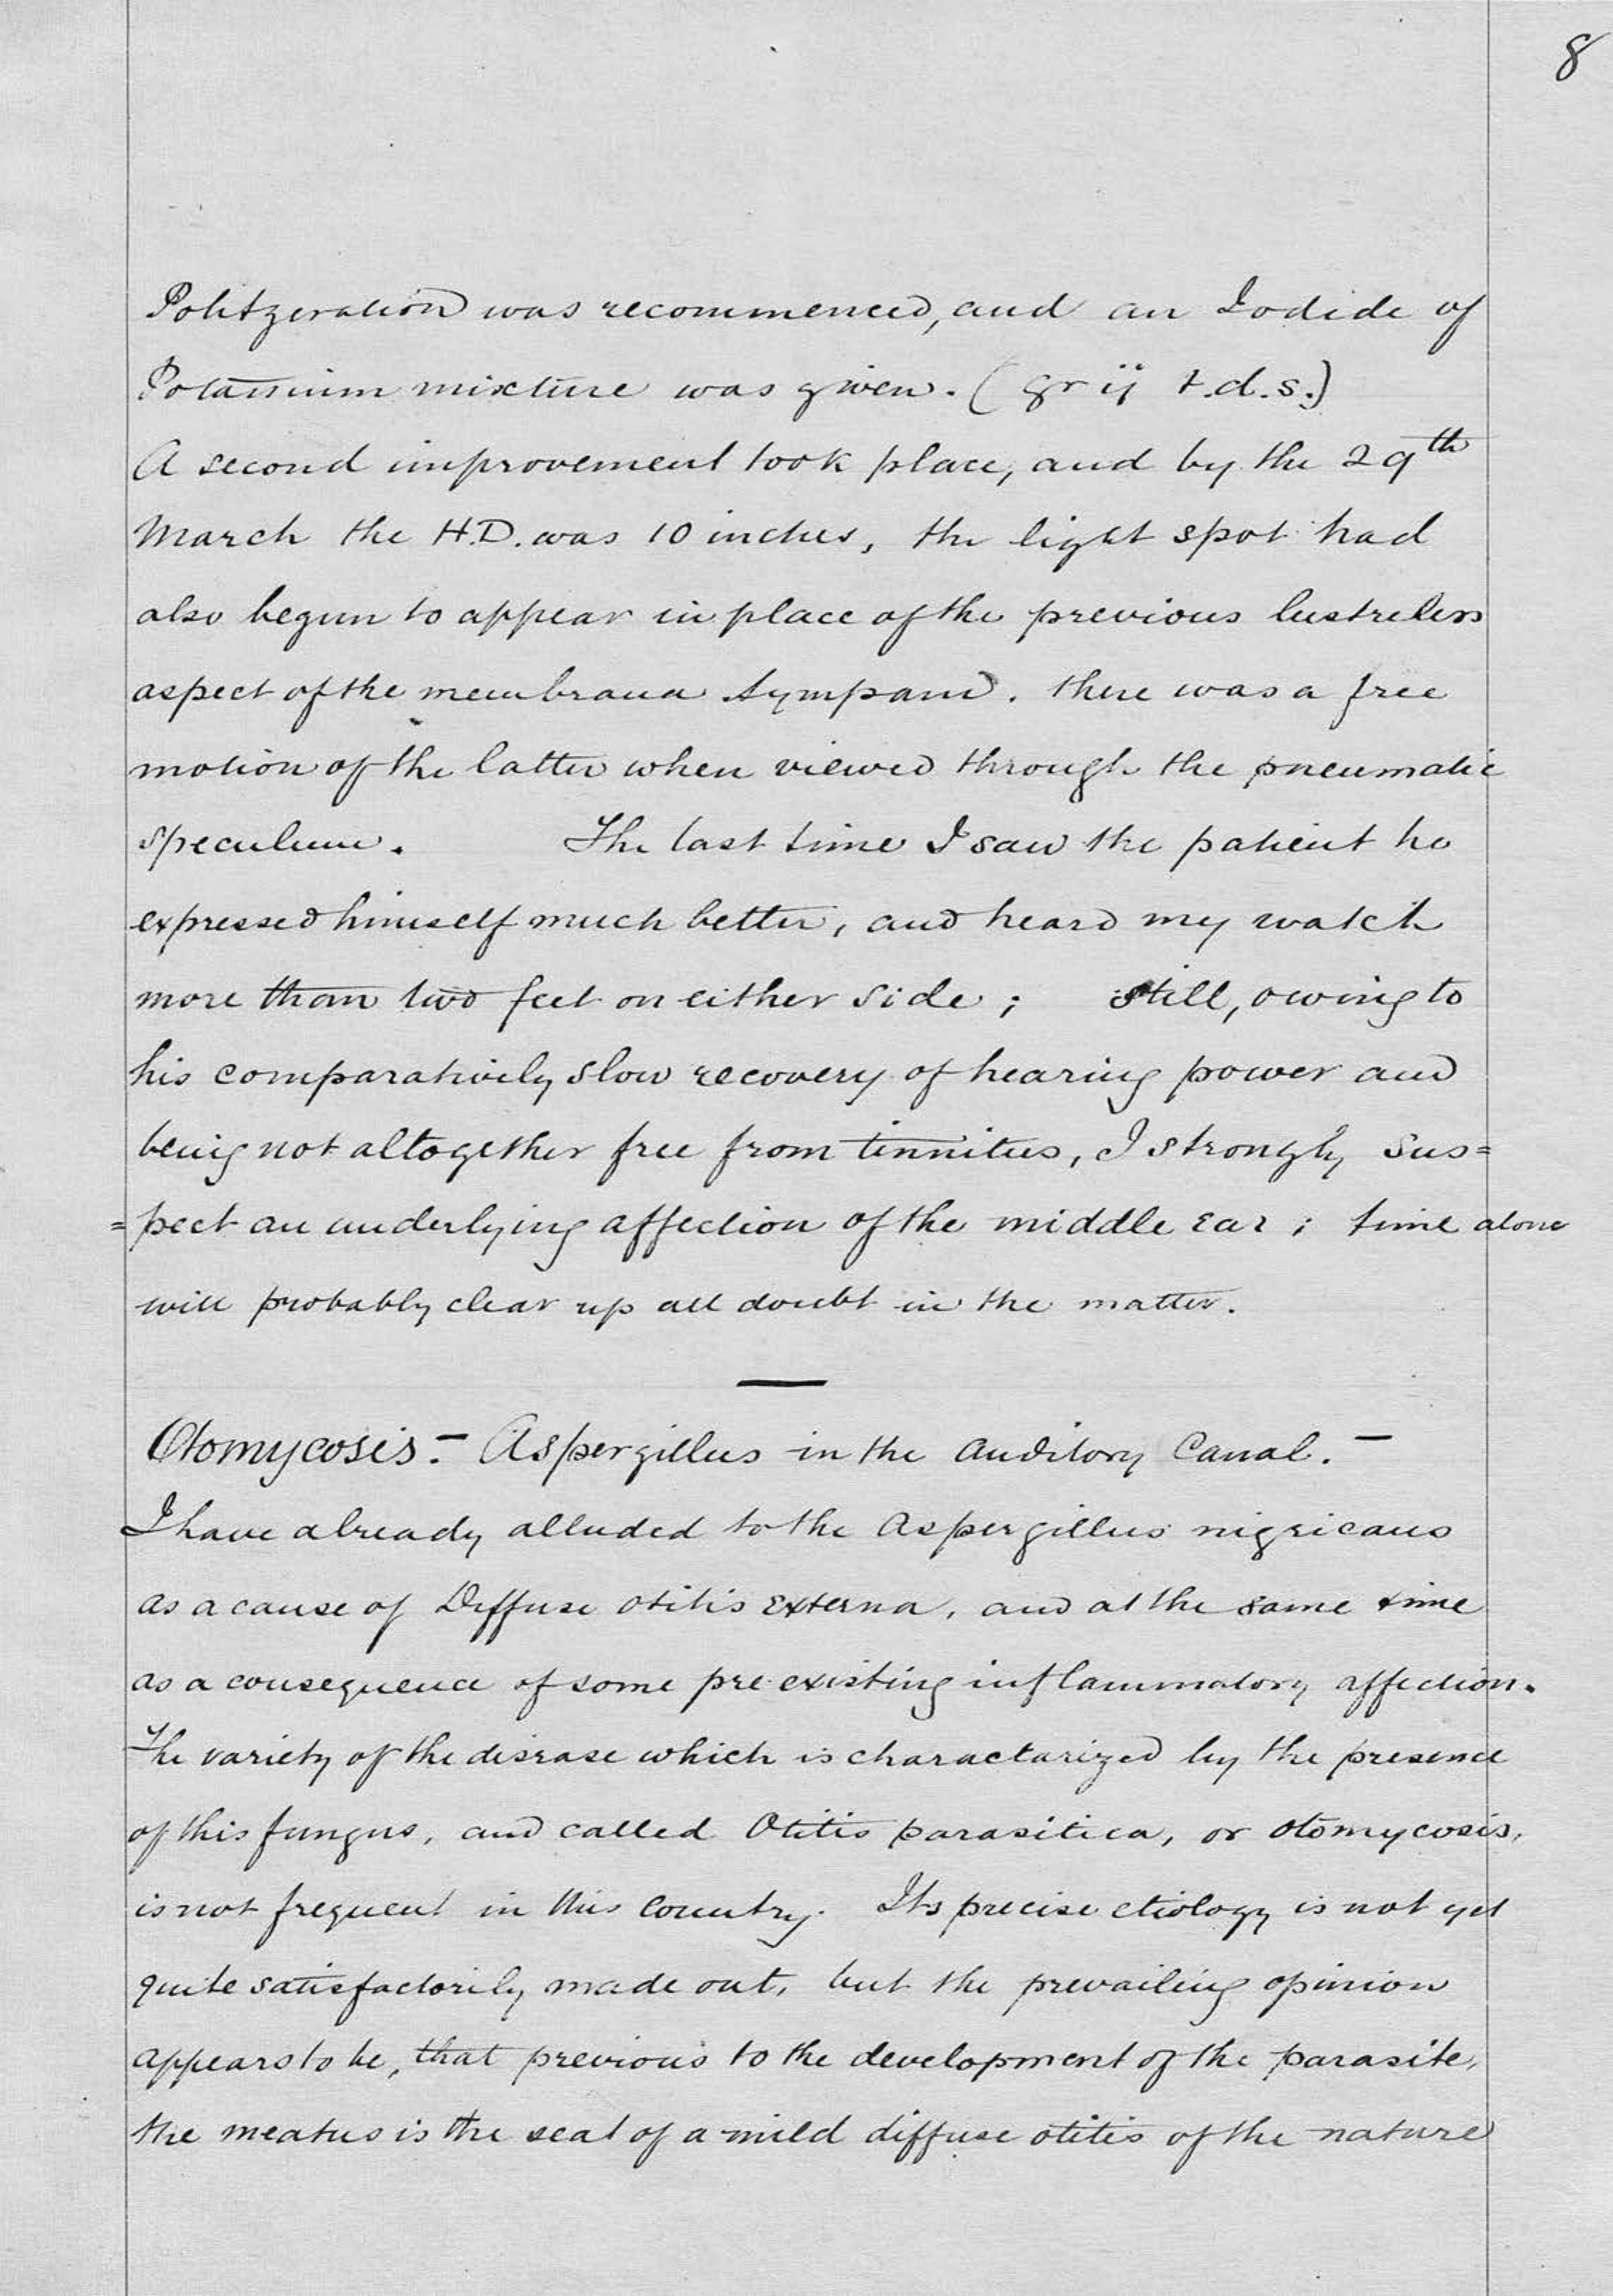 8
Politzeration was recommenced, and an Iodide of
Potassium mixture was given. (gr ij t.d.s.)
A second improvement took place, and by the 29th
March the H.D. was 10 inches, the light spot had
also begun to appear in place of the previous lustreless
aspect of the membrana tympani. there was a free
motion of the latter when viewed through the pneumatic
speculum. The last time I saw the patient he
expressed himself much better, and heard my watch
more than two feet on either side; still, owing to
his comparatively slow recovery of hearing power and
being not altogether free from tinnitus, I strongly sus=
=pect an underlying affection of the middle ear; time alone
will probably clear up all doubt in the matter.
Otomycosis. - Aspergillus in the Auditory Canal. -
I have already alluded to the Aspergillus nigricans
as a cause of Diffuse otitis externa, and at the same time
as a consequence of some pre-existing inflammatory affection.
The variety of the disease which is charactarized by the presence
of this fungus, and called Otitis parasitica, or otomycosis,
is not frequent in this Country. Its precise etiology is not yet
quite satisfactorily made out, but the prevailing opinion
appears to be, that previous to the development of the parasite,
the meatus is the seat of a mild diffuse otitis of the nature